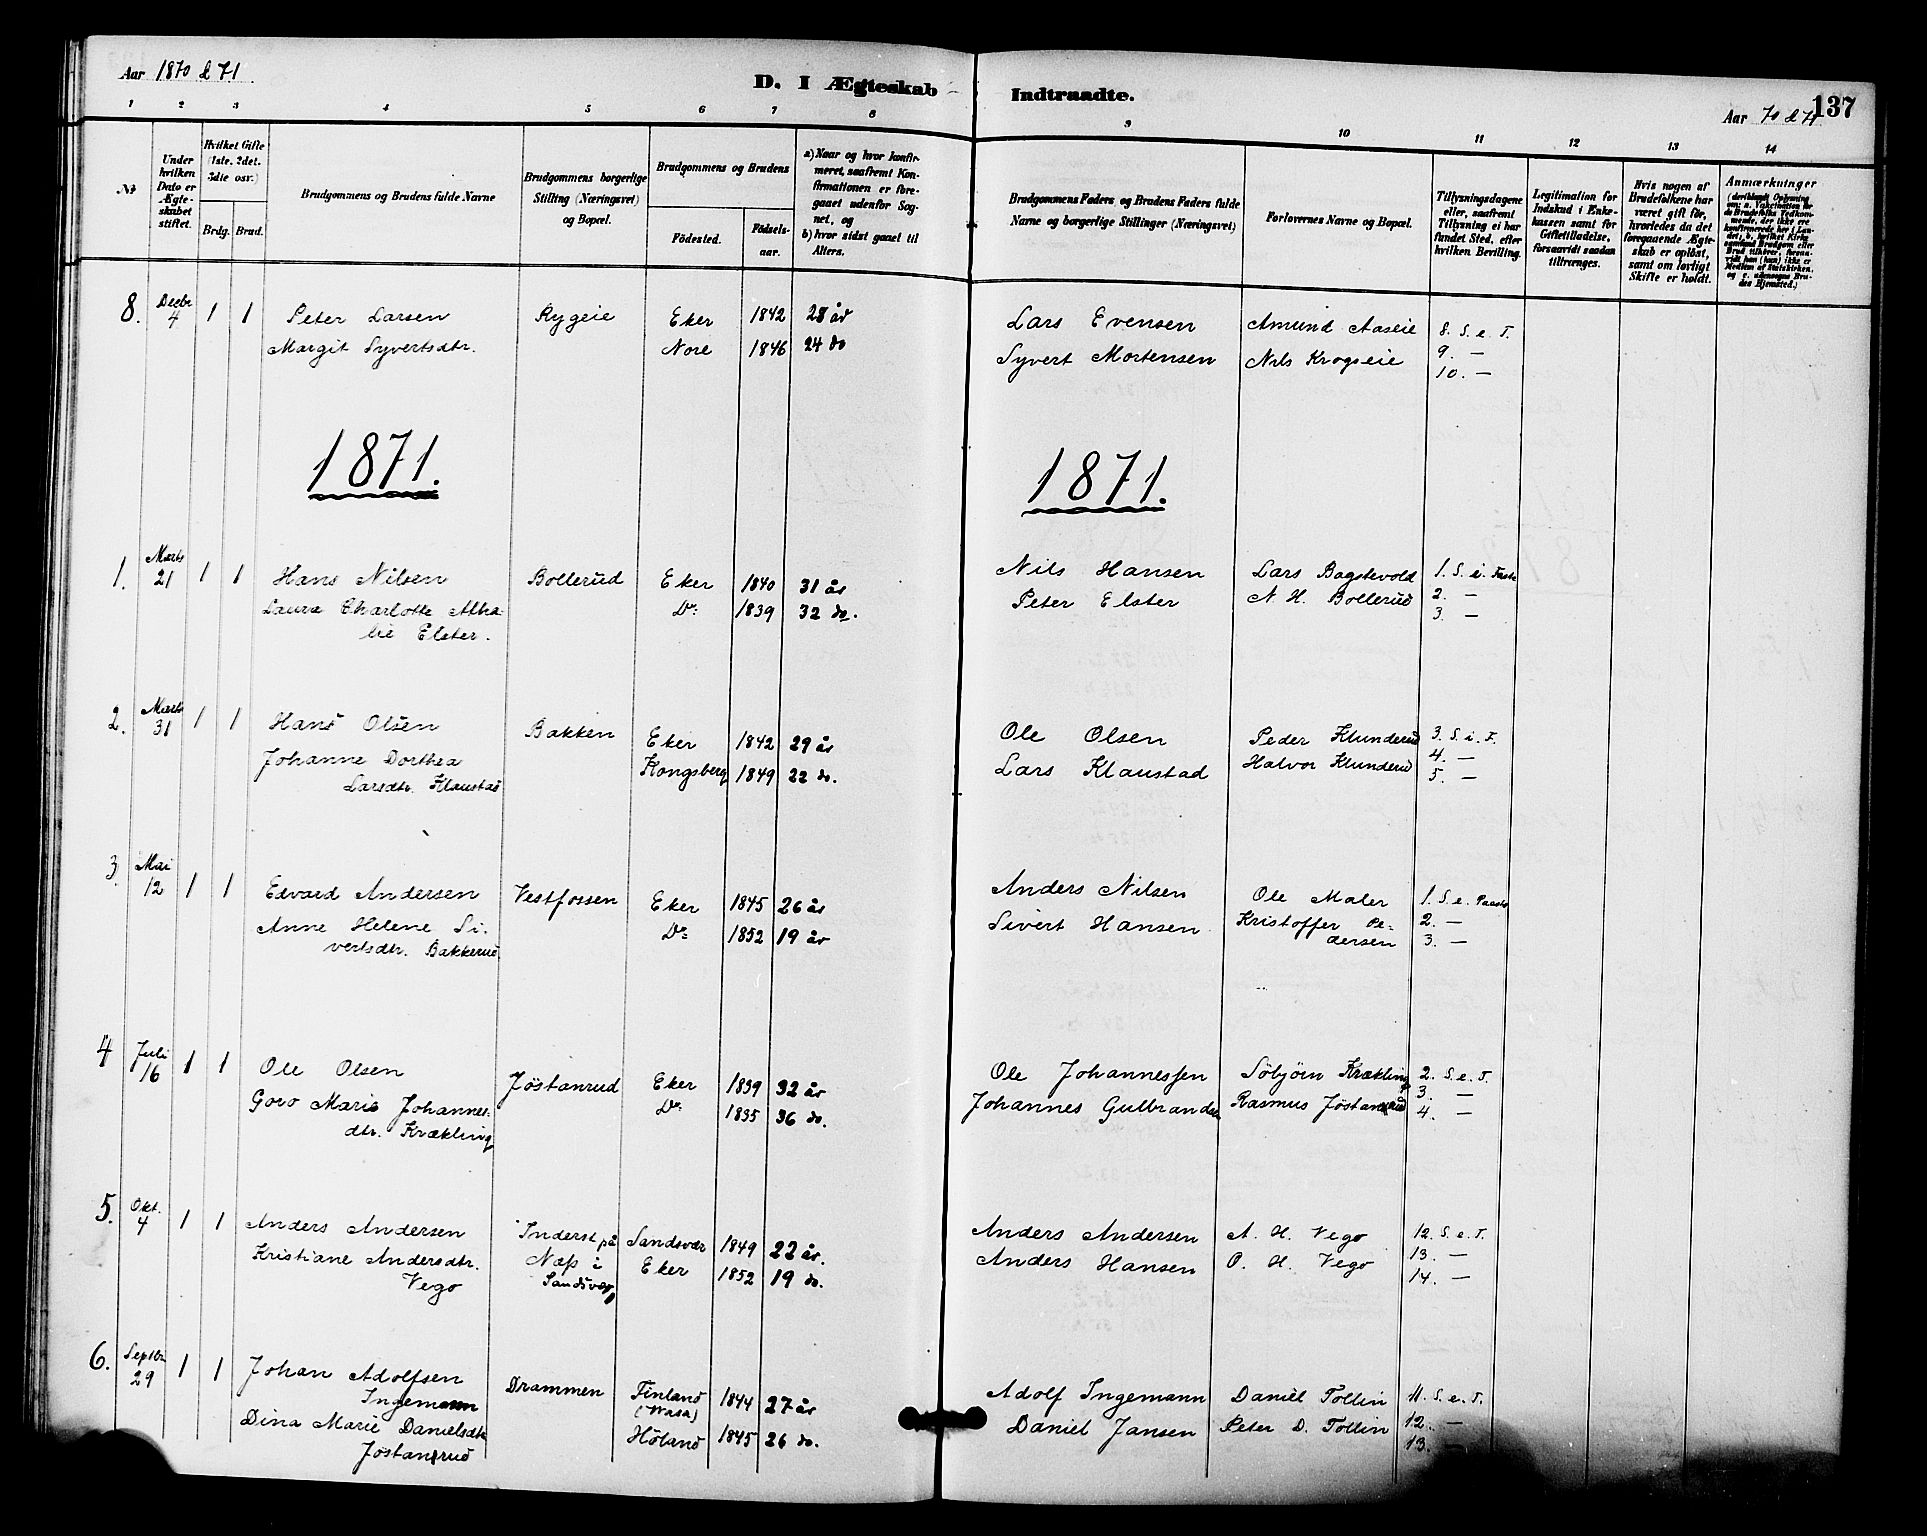 Aar 1870 & 71
D. I Ægteskab
1 2 3 4 5 6 7 8
№
Under hvilken Dato er Ægteskabet stiftet.
Hvilket Gifte (1ste. 2det. 3die osv.)
Brdg. Brud.
Brudgommens og Brudens fulde Navne
Brudgommens borgerlige Stilling (Næringsvei) og Bopæl.
Brudgommens og Brudens
Fødested. Fødsels-aar.
a) Naar og hvor konfirmeret, saafremt Konfirmationen er foregaaet udenfor Sognet, og
b) hvor sidst gaaet til Alters.
8. Decbr 4 1 1 Peter Larsen Rygeie Eker 1842 28 år
Margit Syvertsdtr. Nore 1846 24 do
1871.
1. Marts 21 1 1 Hans Nilsen Bollerud Eker 1840 31 år
Laura Charlotte Atha- Do: 1839 32 do.
lie Elster.
2. Marts 31 1 1 Hans Olsen Bakken Eker 1842 29 år
Johanne Dorthea Kongsberg 1849 22 do.
Larsdtr. Klaustad
3. Mai 12 1 1 Edvard Andersen Vestfossen Eker 1845 26 år
Anne Helene Si- Do: 1852 19 år
vertsdtr. Bakkerud
4 Juli 16 1 1 Ole Olsen Jöstanrud Eker 1839 32 år
Goro Marie Johannes- Do: 1835 36 do.
dtr. Krækling
5. Okt. 4 1 1 Anders Andersen Inderst på Sandsvær 1849 22 år.
Kristiane Andersdtr. Næss i Eker 1852 19 do.
Vego Sandsvær
6. Septbr 29 1 1 Johan Adolfsen Drammen Finland 1844 27 år
Ingemann (Wasa)
Dina Marie Danielsdtr Höland 1845 26 do.
Jöstansrud
Indtraadte.
Aar 70 & 71. 137
9 10 11 12 13 14
Brudgommens Faders og Brudens Faders fulde Navne og borgerlige Stillinger (Næringsvei)
Forlovernes Navne og Bopæl.
Tillysningsdagene eller, saafremt Tillysning ei har fundet Sted, efter hvilken Bevilling.
Legitimation for Indskud i Enkekassen samt for Giftetilladelse, forsaavidt saadan tiltrænges.
Hvis nogen af Brudefolkene har været gift før, hvorledes da det foregaaende Ægteskab er opløst, samt om lovligt Skifte er holdt.
Anmærkninger
Lars Evensen Amund Aaseie 8. S. e. T.
Syvert Mortensen Nils Krogseie 9. —
10. —
1871.
Nils Hansen Lars Bagstevold 1. S. i. Faste
Peter Elster N. H. Bollerud 2. —
3. —
Ole Olsen Peder Klunderud 3. S. i. F.
Lars Klaustad Halvor Klunderud 4. —
5. —
Anders Nilsen Ole Maler 1. S. e. Paaske
Sivert Hansen Kristoffer Pe- 2. —
dersen 3. —
Ole Johannessen Söbjörn Krækling 2. S. e. T.
Johannes Gulbrandsen Rasmus Jöstansrud 3. —
4. —
Anders Andersen A. H. Vego 12. S. e. T.
Anders Hansen O. H. Vego 13. —
14. —
Adolf Ingemann Daniel Tollin 11. S. e. T.
Daniel Jansen Peter D. Tollin 12. —
13. —